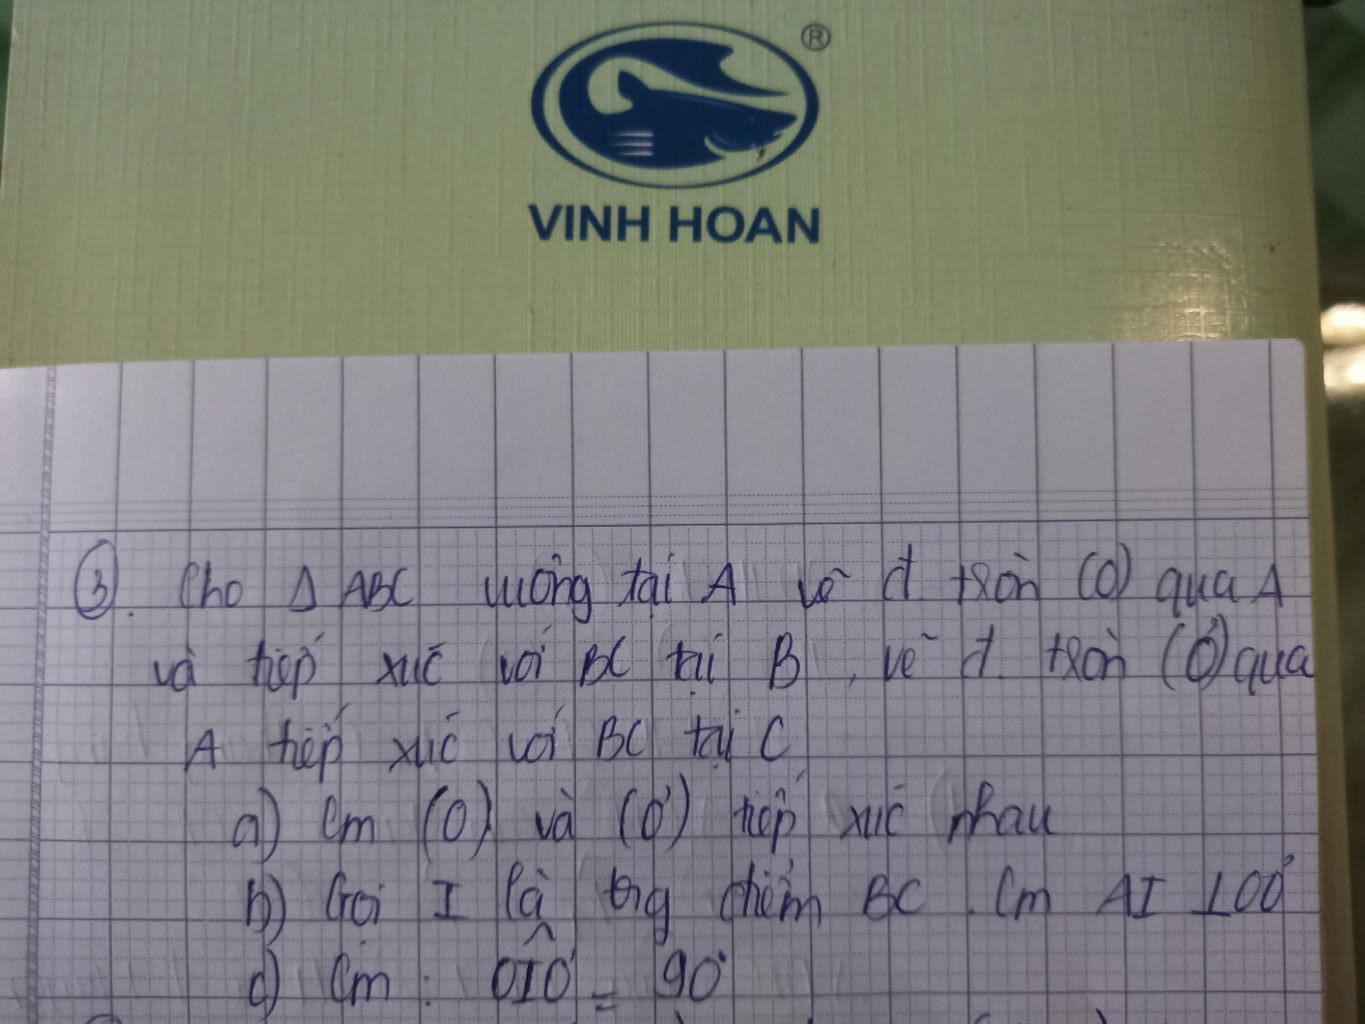 ®
VINH HOAN
③. Cho Δ ABC vuông tại A vẽ đ. tròn (O) qua A
và tiếp xúc với BC tại B, vẽ đ. tròn (O') qua
A tiếp xúc với BC tại C
a) Cm (O) và (O') tiếp xúc nhau
b) Gọi I là trg điểm BC. Cm AI ⊥ OO'
c) Cm : OIO' = 90°